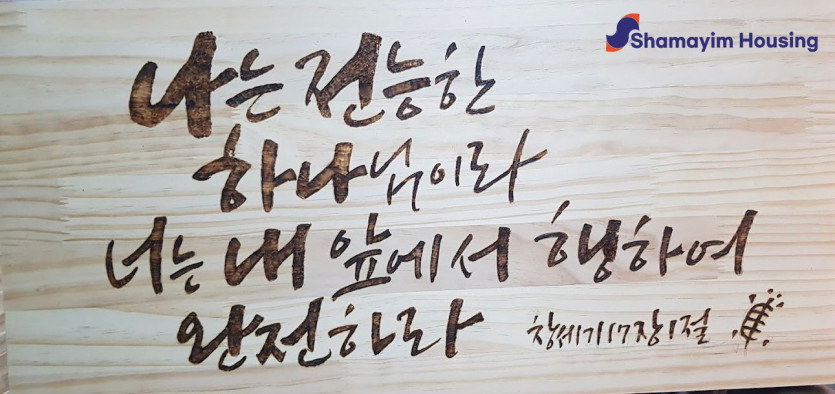 Shamayim Housing
나는 전능한
하나님이라
너는 내 앞에서 행하여
완전하라
창세기17장1절